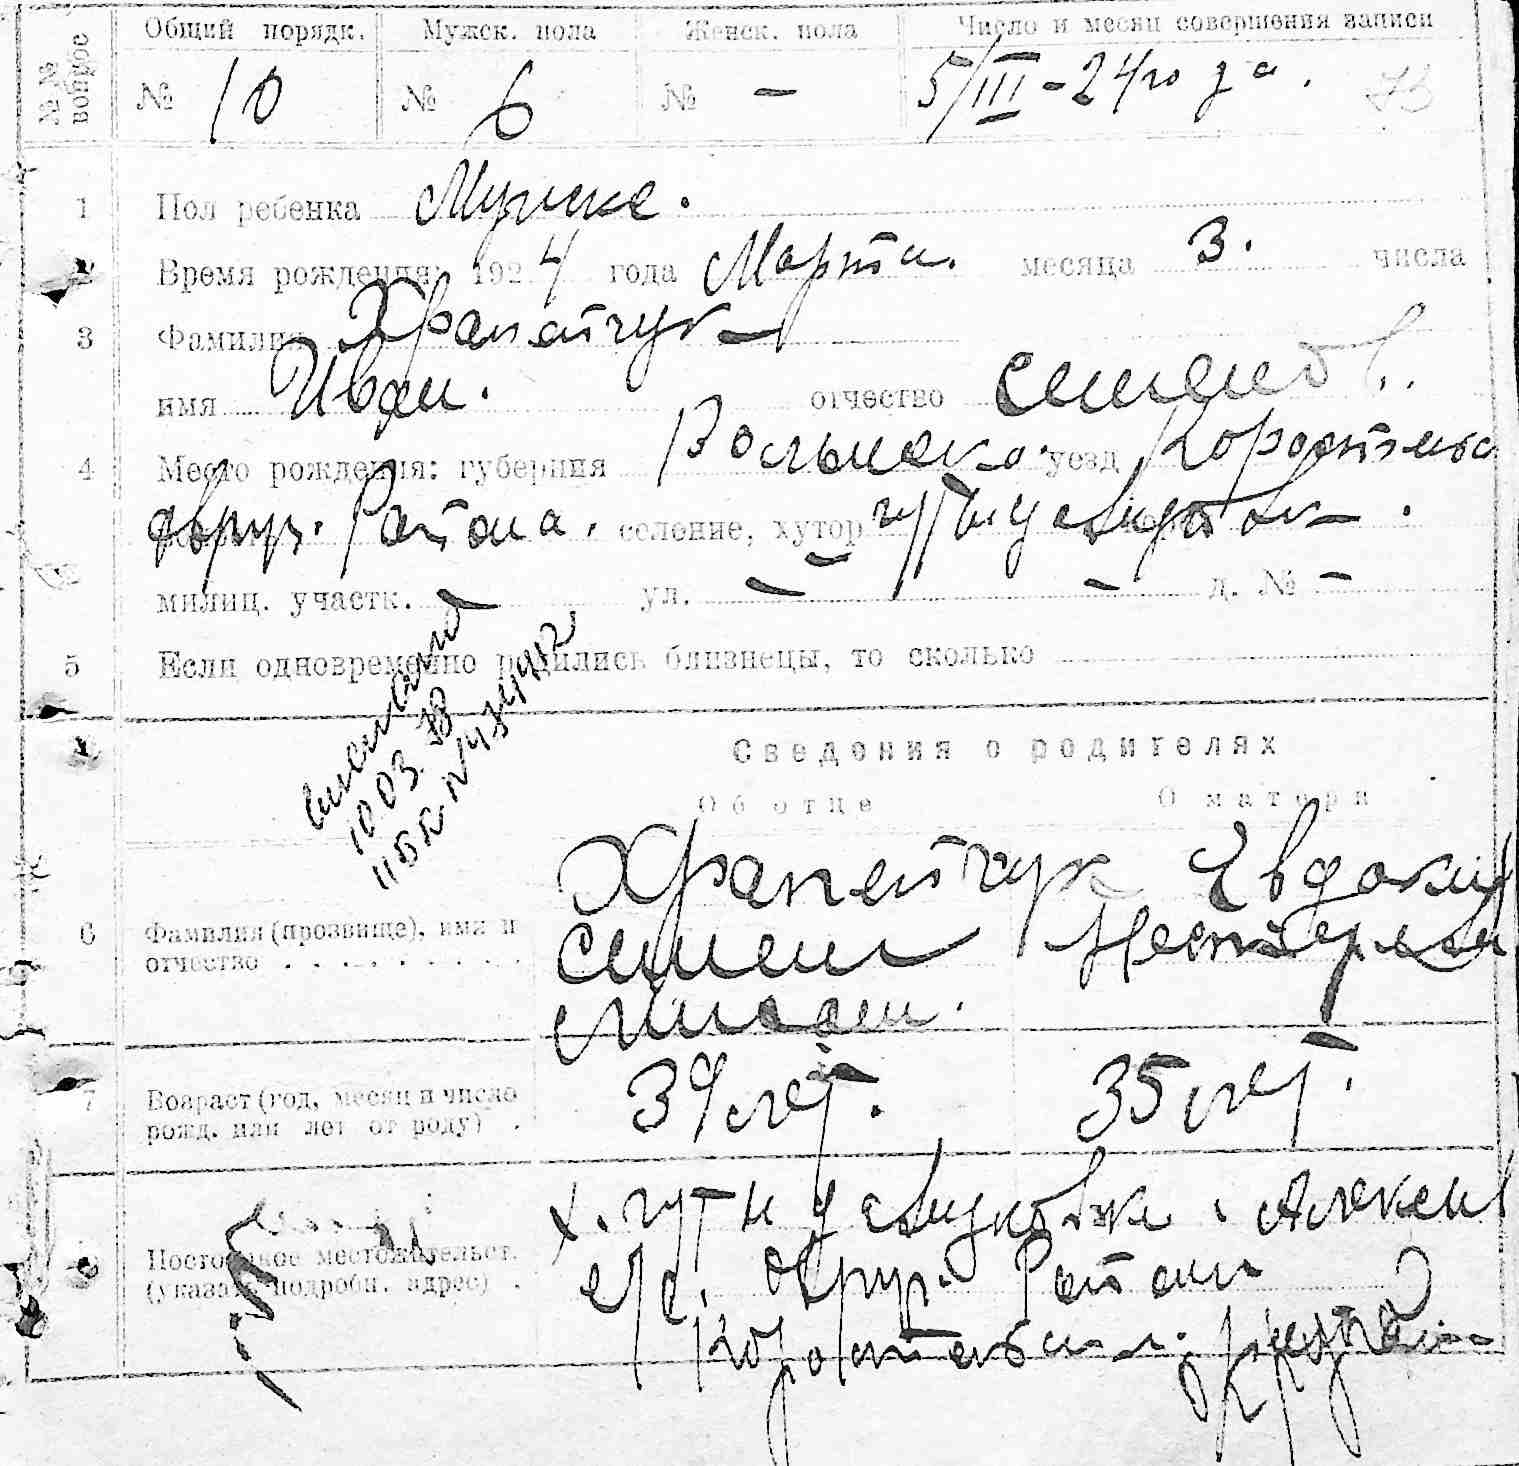 №№ вопрос
Общий порядк. Мужск. пола Женск. пола Число и месяц совершения записи
№ 10 № 6 № — 5/III-24го года. 73
1 Пол ребенка Мужске.
2 Время рождения: 1924 года Марта. месяца 3. числа
3 Фамилия Храпатчук
имя Иван. отчество Семенов.
4 Место рождения: губерния Волынско уезд Коростеньс
Овруч. Района. селение, хутор
милиц. участк. — ул. — — д. № —
5 Если одновременно родились близнецы, то сколько
10 03
Сведения о родителях
Об отце О матери
Храпатчук Евдокия
6 Фамилия (прозвище), имя и Семен Нестеров
отчество
7 Возраст (год, месяц и число 39 лет. 35 лет.
рожд. или лет от роду)
8 Постоянное местожительст. х.
(указать подробн. адрес) с/с. Овруч. Района
Коростеньск. Округа